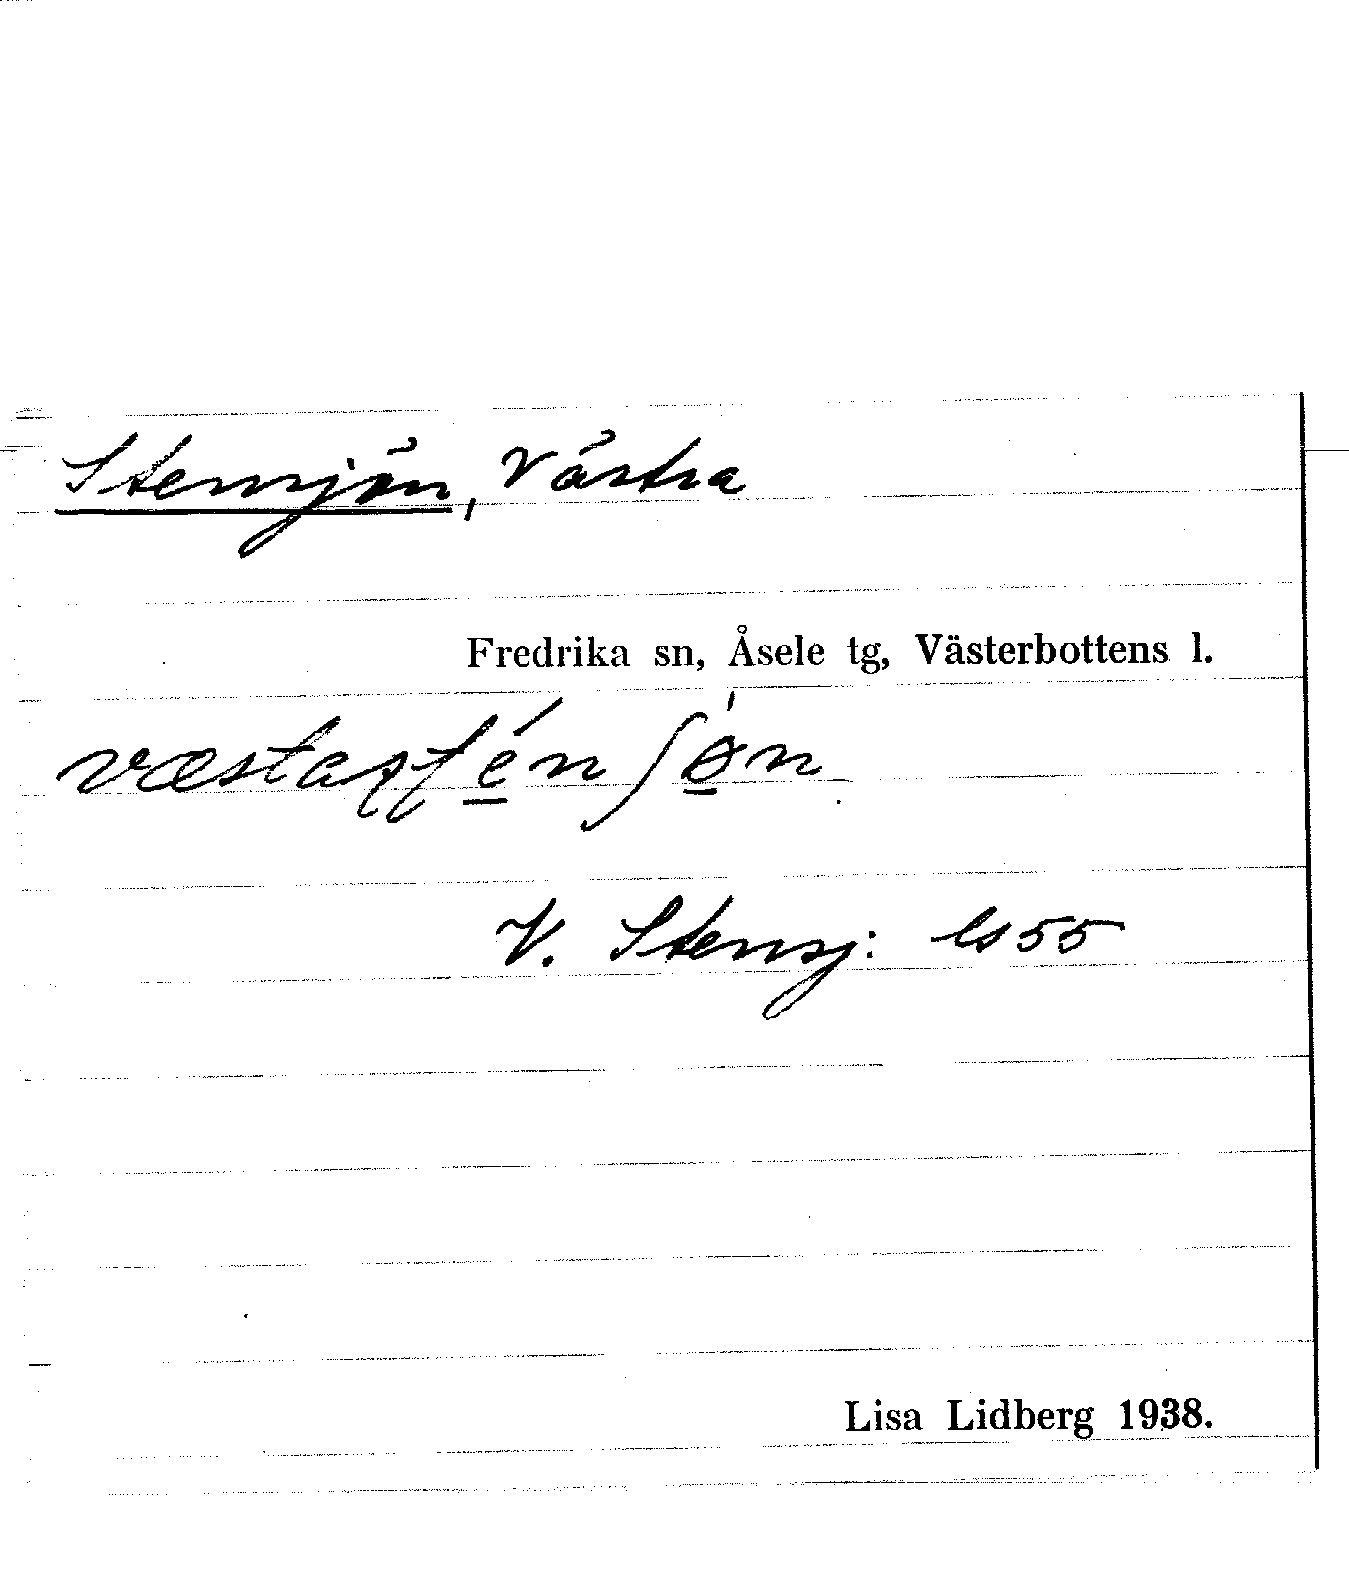 Stensjön, Västra
Fredrika sn, Åsele tg, Västerbottens l.
V. Stensj: ls 55
Lisa Lidberg 1938.